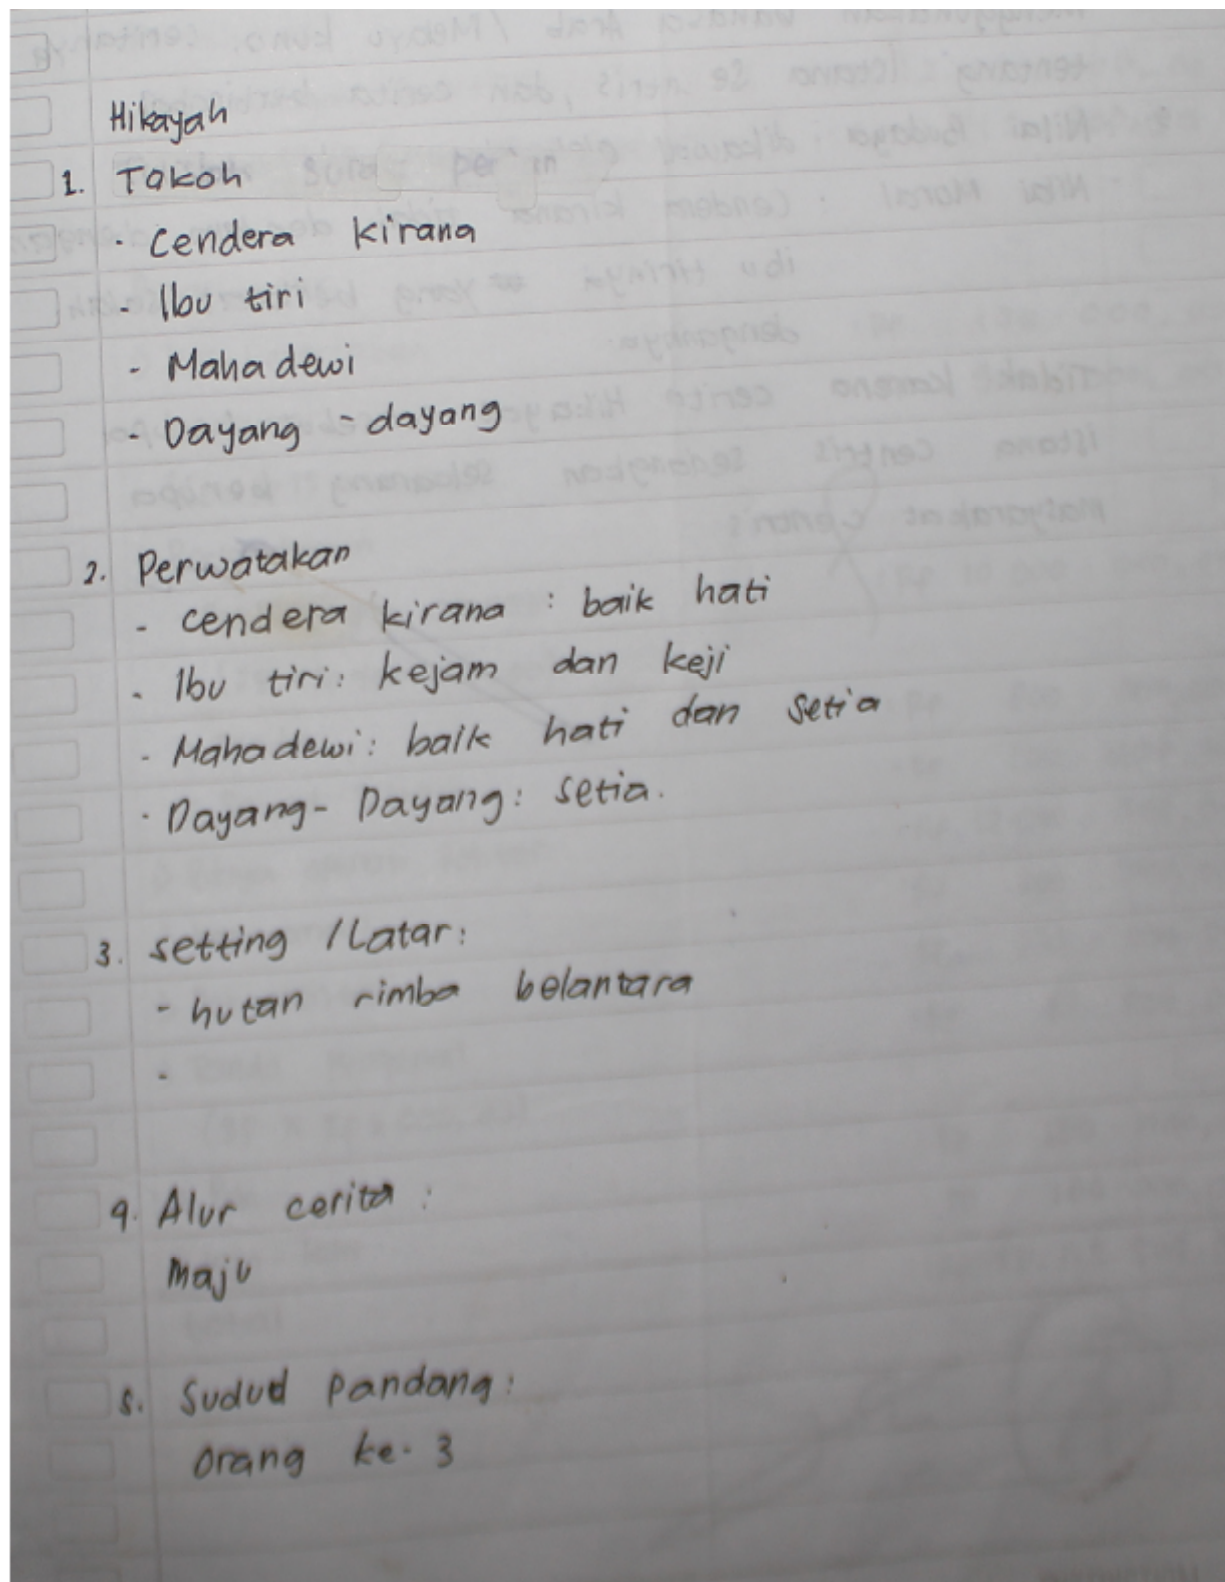 Hikayah
1. Takoh
- Cendera kirana
- Ibu tiri
- Mahadewi
- Dayang - dayang
2. Perwatakan
- Cendera kirana : baik hati
- Ibu tiri : kejam dan keji
- Mahadewi : baik hati dan setia
- Dayang - Dayang : setia.
3. setting / Latar :
- hutan rimba belantara
-
4. Alur cerita :
Maju
5. Sudud pandang :
Orang ke-3